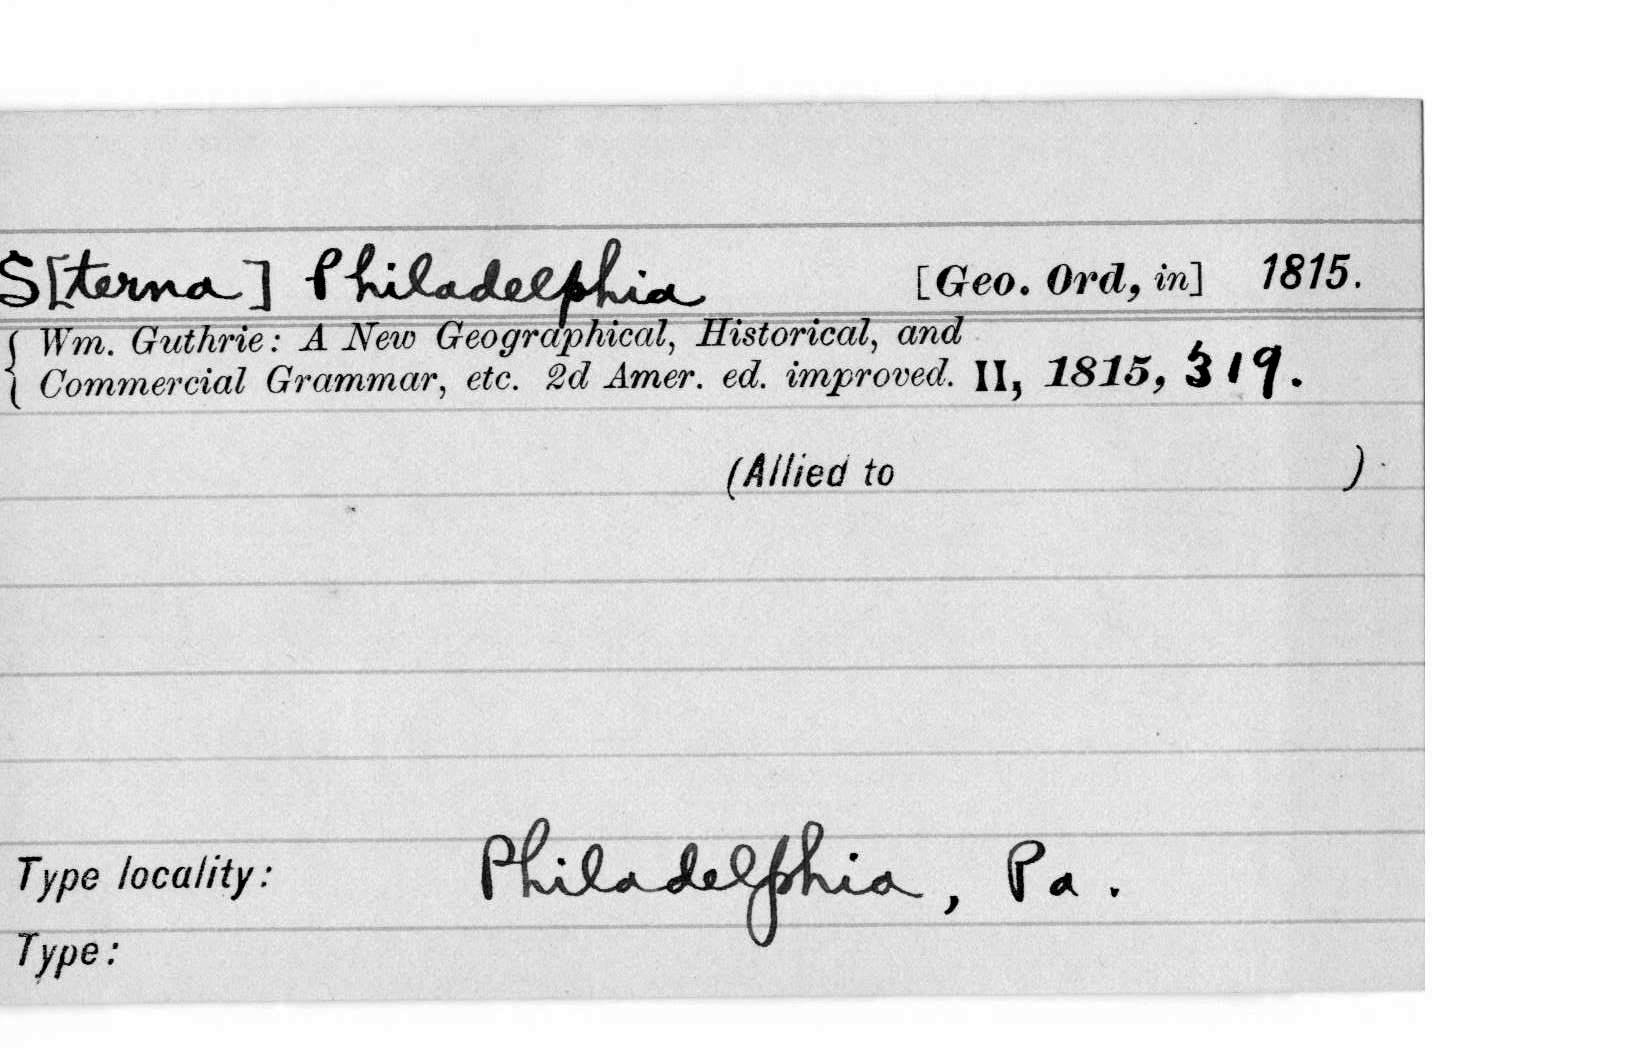 S[terna] Philadelphia [Geo. Ord, in] 1815.
Wm. Guthrie: A New Geographical, Historical, and
Commercial Grammar, etc. 2d Amer. ed. improved. II, 1815, 319.
(Allied to )
Type locality: Philadelphia, Pa.
Type: